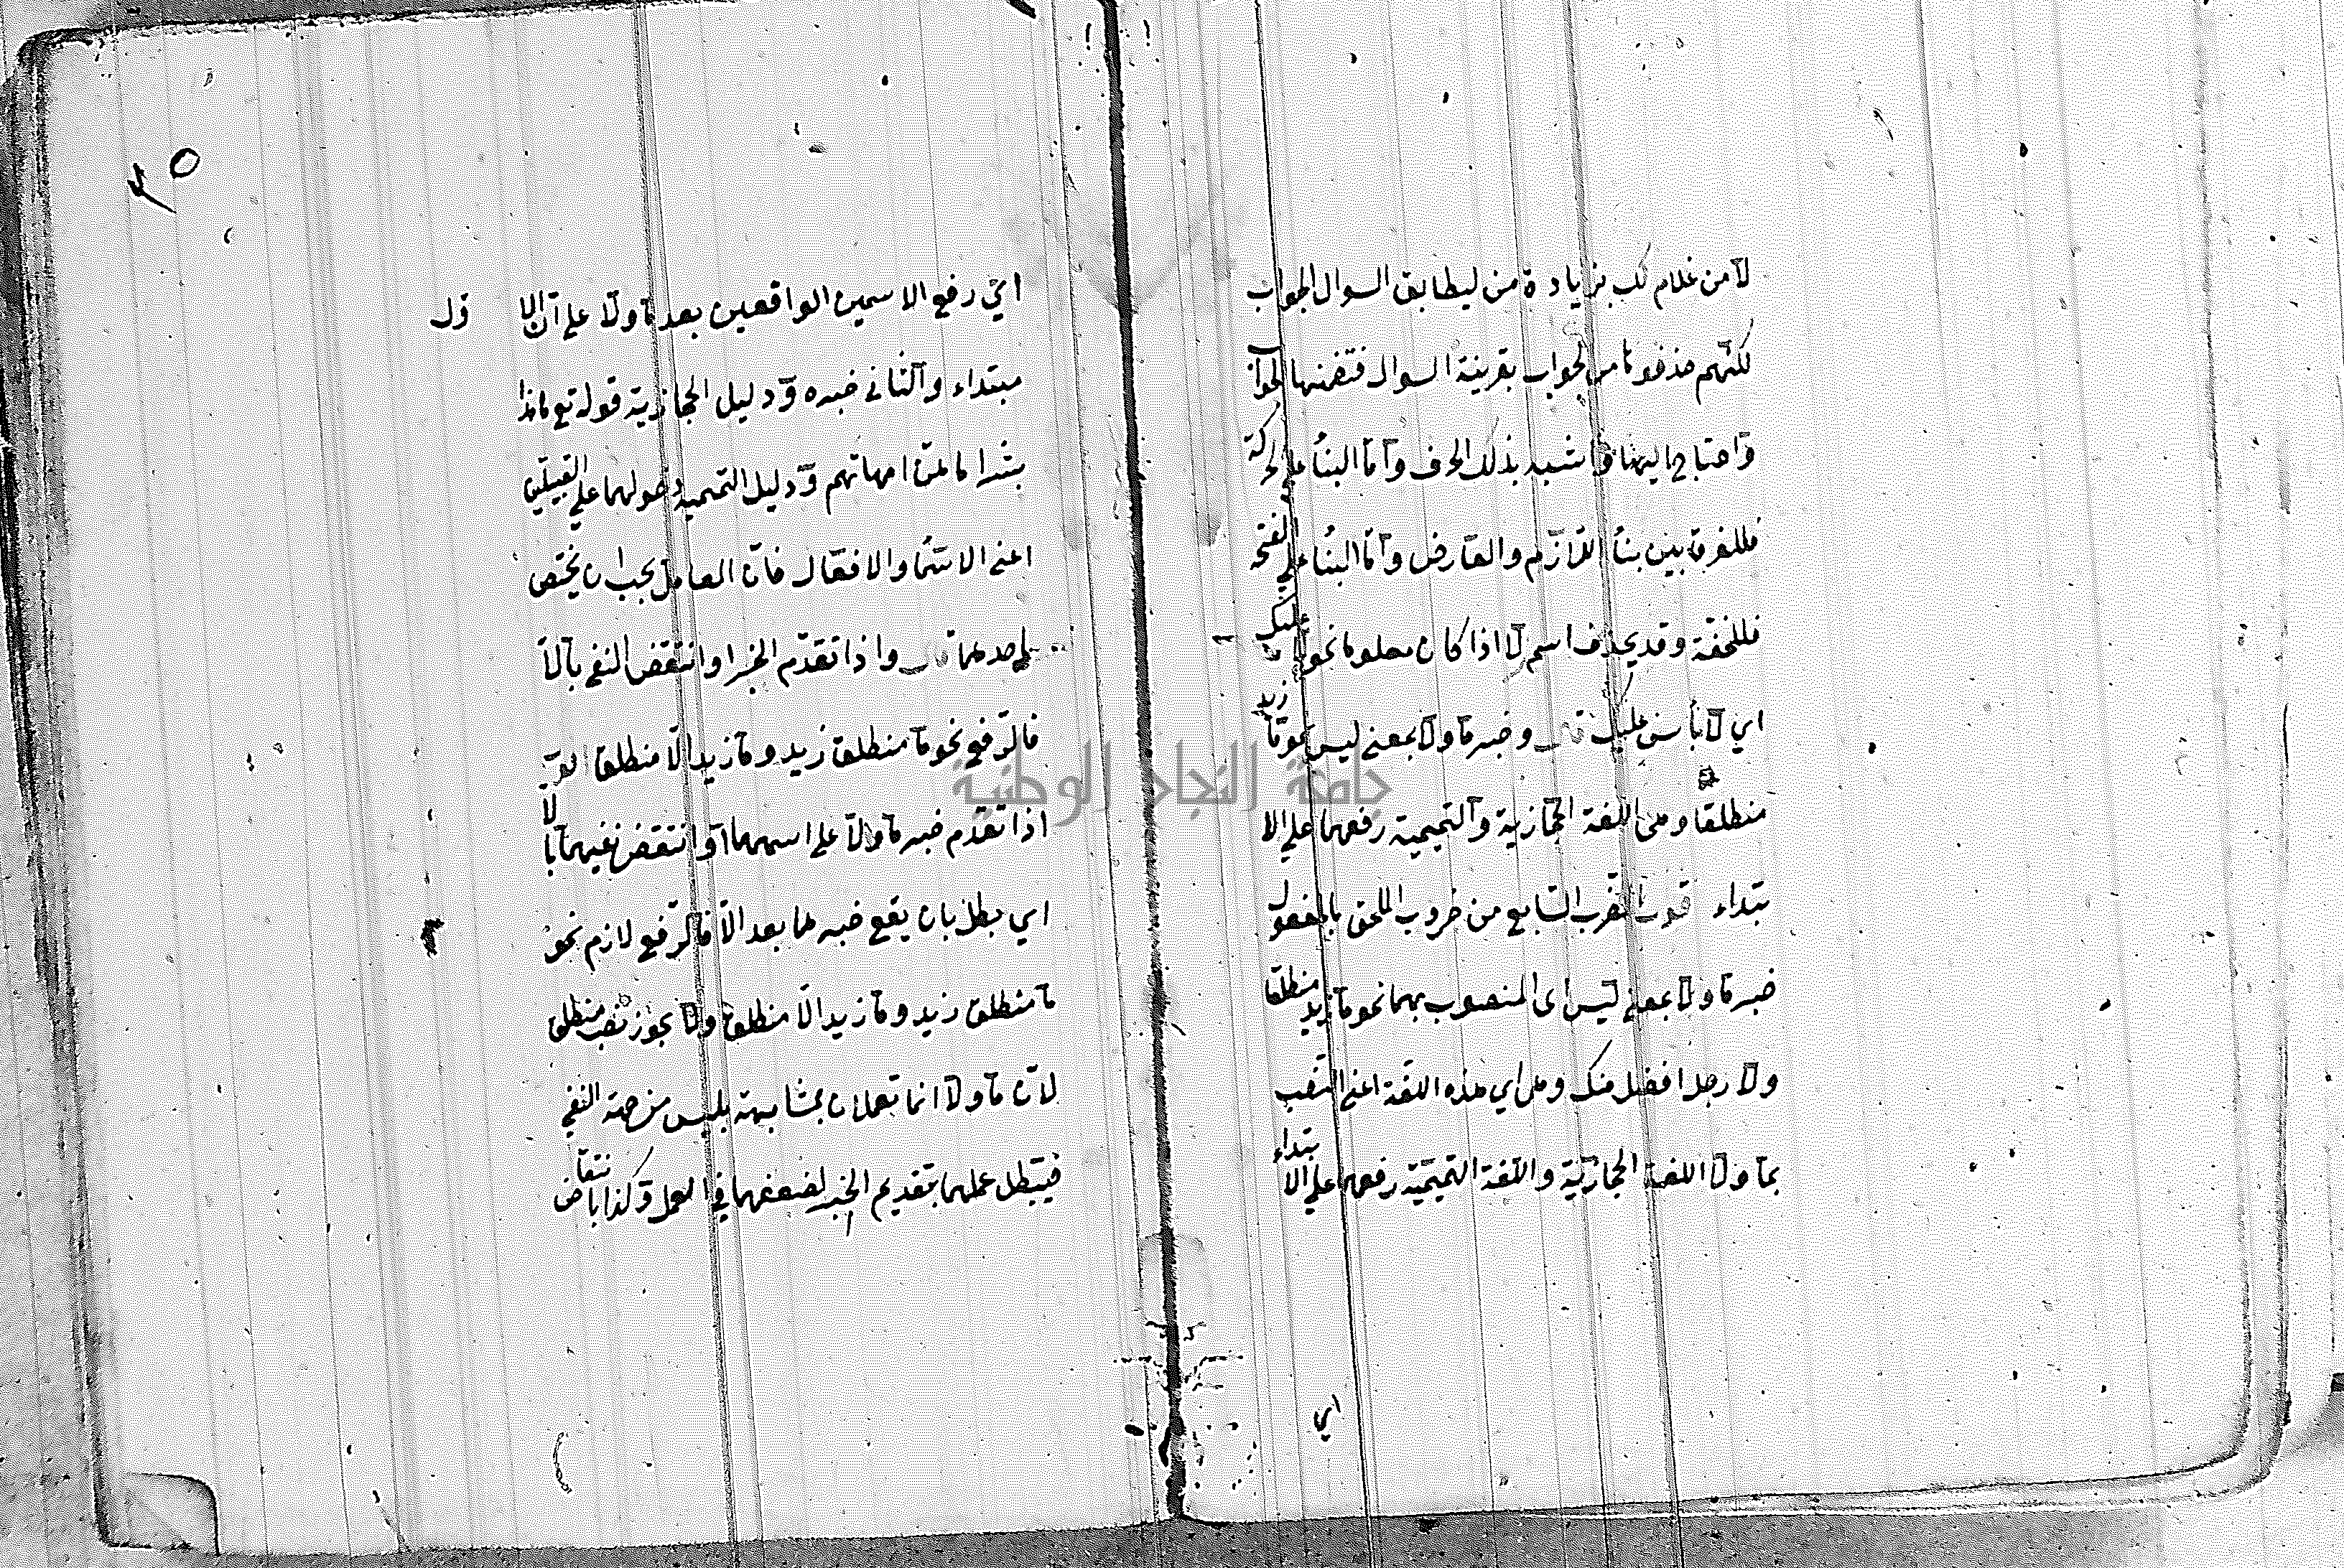 لا من غلام لك بزيادة من ليطابق السوال الجواب
لكنهم حذفوا من الجواب بقرينة السوال فتضمنها الجواب
واحتاج اليها فاشبه بذلك الحرف وامّا البنأ على الحركة
فللفرق بين بنأ اللّازم والعارض وامّا البنأ على الفتحة
فللخفّة وقد يحذف اسم لا اذا كان معلوما نحو لا عليك
اي لا بأس عليك قال وخبر ما ولا بمعنى ليس نحو ما زيد
منطلقا وهى اللغة الحجازية والتميمية رفعهما على الا
بتداء اقول الضرب السّابع من ضروب الملحق بالمفعول
خبر ما ولا بمعنى ليس اى المنصوب بهما نحو ما زيد منطلقا
ولا رجل افضل منك وهى اي هذه اللغة اعنى النّصب
بما ولا اللغة الحجازيّة واللغة التميميّة رفعهما على الابتداء
اي
٢٥
اي رفع الاسمين الواقعين بعد ما ولا على ان الاول
مبتداء والثانى خبره ودليل الحجازية قوله تع ما هذا
بشرا ما هنّ امهاتهم ودليل التميمية دخولهما على القبيلتين
اعنى الاسما والافعال فانّ العامل يجب ان يختص
باحدهما قال واذا تقدّم الخبر او انتقض النفى بالّا
فالرّفع نحو ما منطلق زيد وما زيد الّا منطلق اقول
اذا تقدّم خبر ما ولا على اسمهما او انتقض نفيهما بالا
اي بطل بان يقع خبرهما بعد الّا فالرّفع لازم نحو
ما منطلق زيد وما زيد الّا منطلق ولا يجوز نصب منطلق
لانّ ما ولا انما تعملان بمشابهة بليس من جهة النفي
فيبطل عملهما بتقديم الخبر لضعفهما في العمل وكذا بانتقاض
جامعة النجاح الوطنية